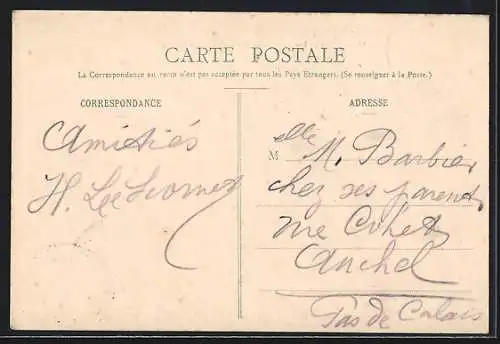 CARTE POSTALE
La Correspondance au recto n'est pas acceptée par tous les Pays Etrangers. (Se renseigner à la Poste.)
CORRESPONDANCE
ADRESSE
Amitiés
H.
Melle M. Barbier
chez ses parents
rue
Auchel
Pas de Calais